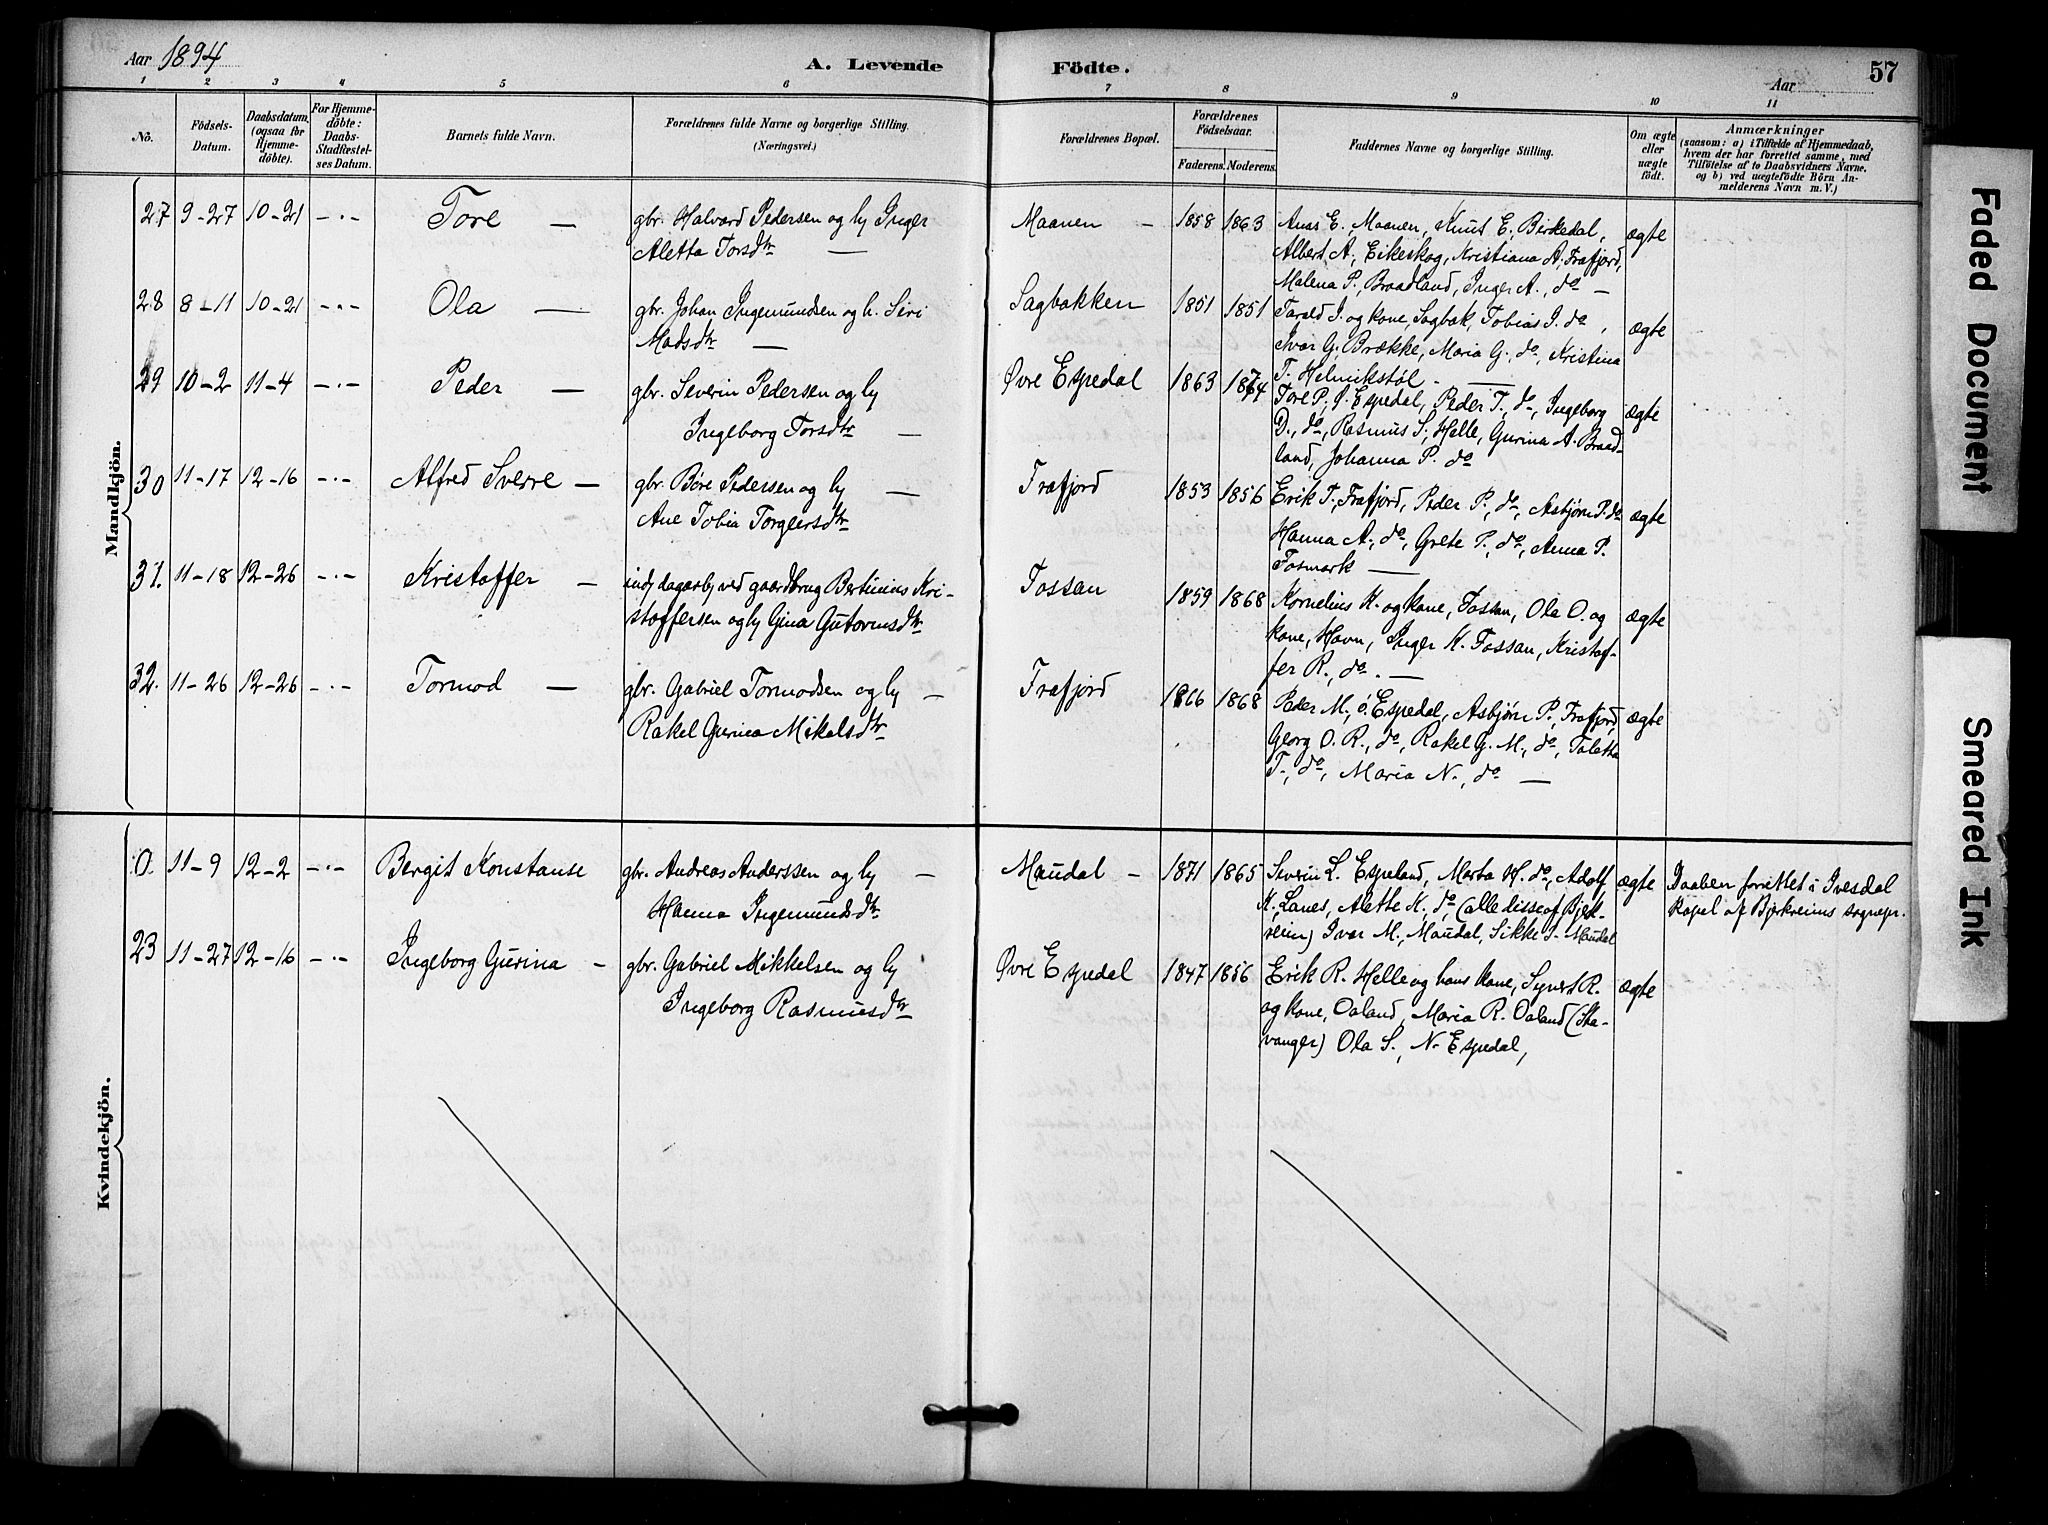 Aar 1894
A. Levende
Födte.
Aar
57
1 2 3 4 5 6 7 8 9 10 11
No.
Födsels-
Datum.
Daabsdatum
(ogsaa for
Hjemme-
döbte).
For Hjemme-
döbte:
Daabs-
Stadfæstel-
ses Datum.
Barnets fulde Navn.
Forældrenes fulde Navne og borgerlige Stilling.
(Næringsvei.)
Forældrenes Bopæl.
Forældrenes
Födselsaar.
Faderens. Moderens.
Faddernes Navne og borgerlige Stilling.
Om ægte
eller
uægte
födt.
Anmærkninger
(saasom: a) i Tilfælde af Hjemmedaab,
hvem der har forrettet samme, med
Tilföielse af to Daabsvidners Navne,
og b) ved uægtefödte Börn An-
melderens Navn m. V.)
Mandkjön.
27 9-27 10-21 -·- Tore — gbr. Halvard Pedersen og hy Inger
Aletta Torsdtr —
Maanen — 1858 1863 Anas E. Maanen, Knut E. Birkedal,
Albert A., Eikeskog, Kristiana A. Frafjord,
Malena P. Braadland, Inger A., do —
ægte
28 8-11 10-21 -·- Ola — gbr. Johan Ingemundsen og h. Siri
Madsdtr —
Sagbakken 1851 1851 Tarald J. og kone, Sagbak, Tobias J. do,
Ivar G. Brække, Maria G., do, Kristina
T. Helmikstøl. —
ægte
29 10-2 11-4 -·- Peder — gbr. Severin Pedersen og hy
Ingeborg Torsdtr —
Øvre Espedal 1863 1874 Tore P., Ø. Espedal, Peder T., do, Ingeborg
D., do, Rasmus S., Helle, Gurina A. Braad-
land, Johanna P. do
ægte
30 11-17 12-16 -·- Alfred Sverre — gbr. Børe Pedersen og hy —
Ane Tobia Torgersdtr
Frafjord 1853 1856 Erik T. Frafjord, Peder P., do, Asbjørn P. do
Hanna A., do, Grete P., do, Anna P.
Fosmark —
ægte
31. 11-18 12-26 -·- Kristoffer — indy dagarb. ved gaardbrug Bertinius Kri-
stoffersen og hy Gina Gutormsdtr
Fossan 1859 1868 Kornelius K. og kone, Fossan, Ola O. og
kone, Havn, Inger K. Fossan, Kristof-
fer R., do. —
ægte
32. 11-26 12-26 -·- Tormod — gbr. Gabriel Tormodsen og hy —
Rakel Gurina Mikelsdtr
Frafjord 1866 1868 Peder M., ø. Espedal, Asbjørn P., Frafjord,
Georg O. R., do, Rakel G. M., do, Taletta
T., do, Maria N., do —
ægte
Kvindekjön.
0. 11-9 12-2 -·- Bergit Konstanse gbr. Andreas Anderssen og hy —
Hanna Ingemundsdtr
Maudal — 1871 1865 Severin L. Espeland, Marta H. do, Adolf
K. Lanes, Alette K., do, (alle disse af Bjerk-
reim) Ivar M., Maudal, Sikke I. Maudal
ægte Daaben forrettet i Ivesdal
kapel af Bjerkreims sognepr.
23 11-27 12-16 -·- Ingeborg Gurina — gbr. Gabriel Mikkelsen og hy
Ingeborg Rasmusdtr
Øvre Espedal 1847 1856 Erik R. Helle og hans kone, Synert R.
og kone, Oaland, Maria R. Oaland (Sta-
vanger) Ola S., N. Espedal,
ægte
Faded Document
Smeared Ink